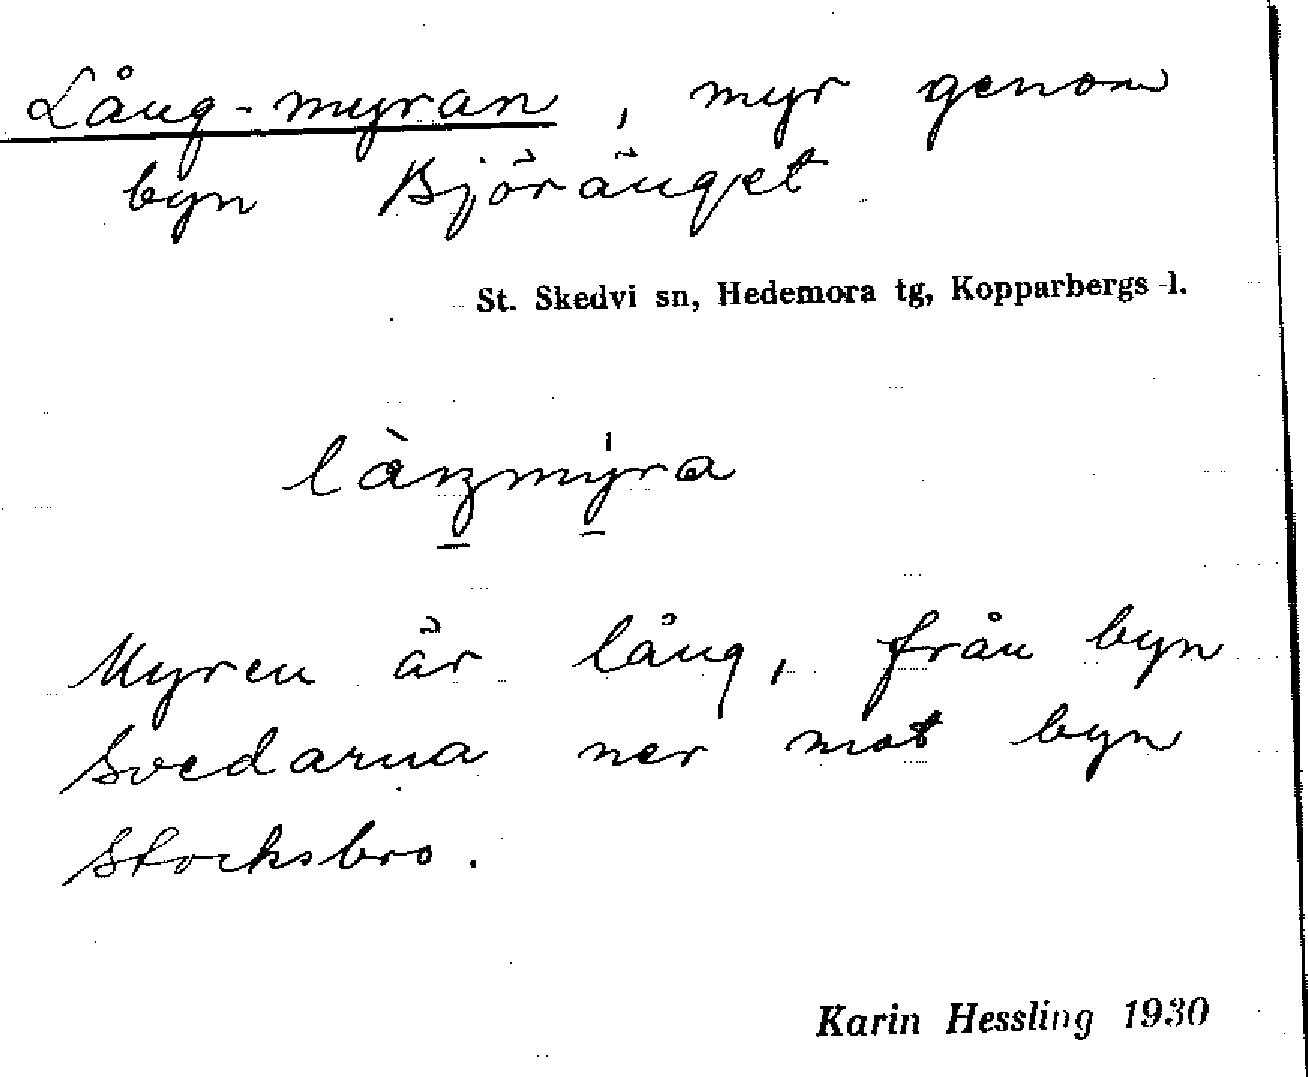 Lång-myran, myr genom
byn Björänget
St. Skedvi sn, Hedemora tg, Kopparbergs l.
làŋmy̍ra
Myren är lång, från byn
Svedarna ner mot byn
Stocksbro.
Karin Hessling 1930